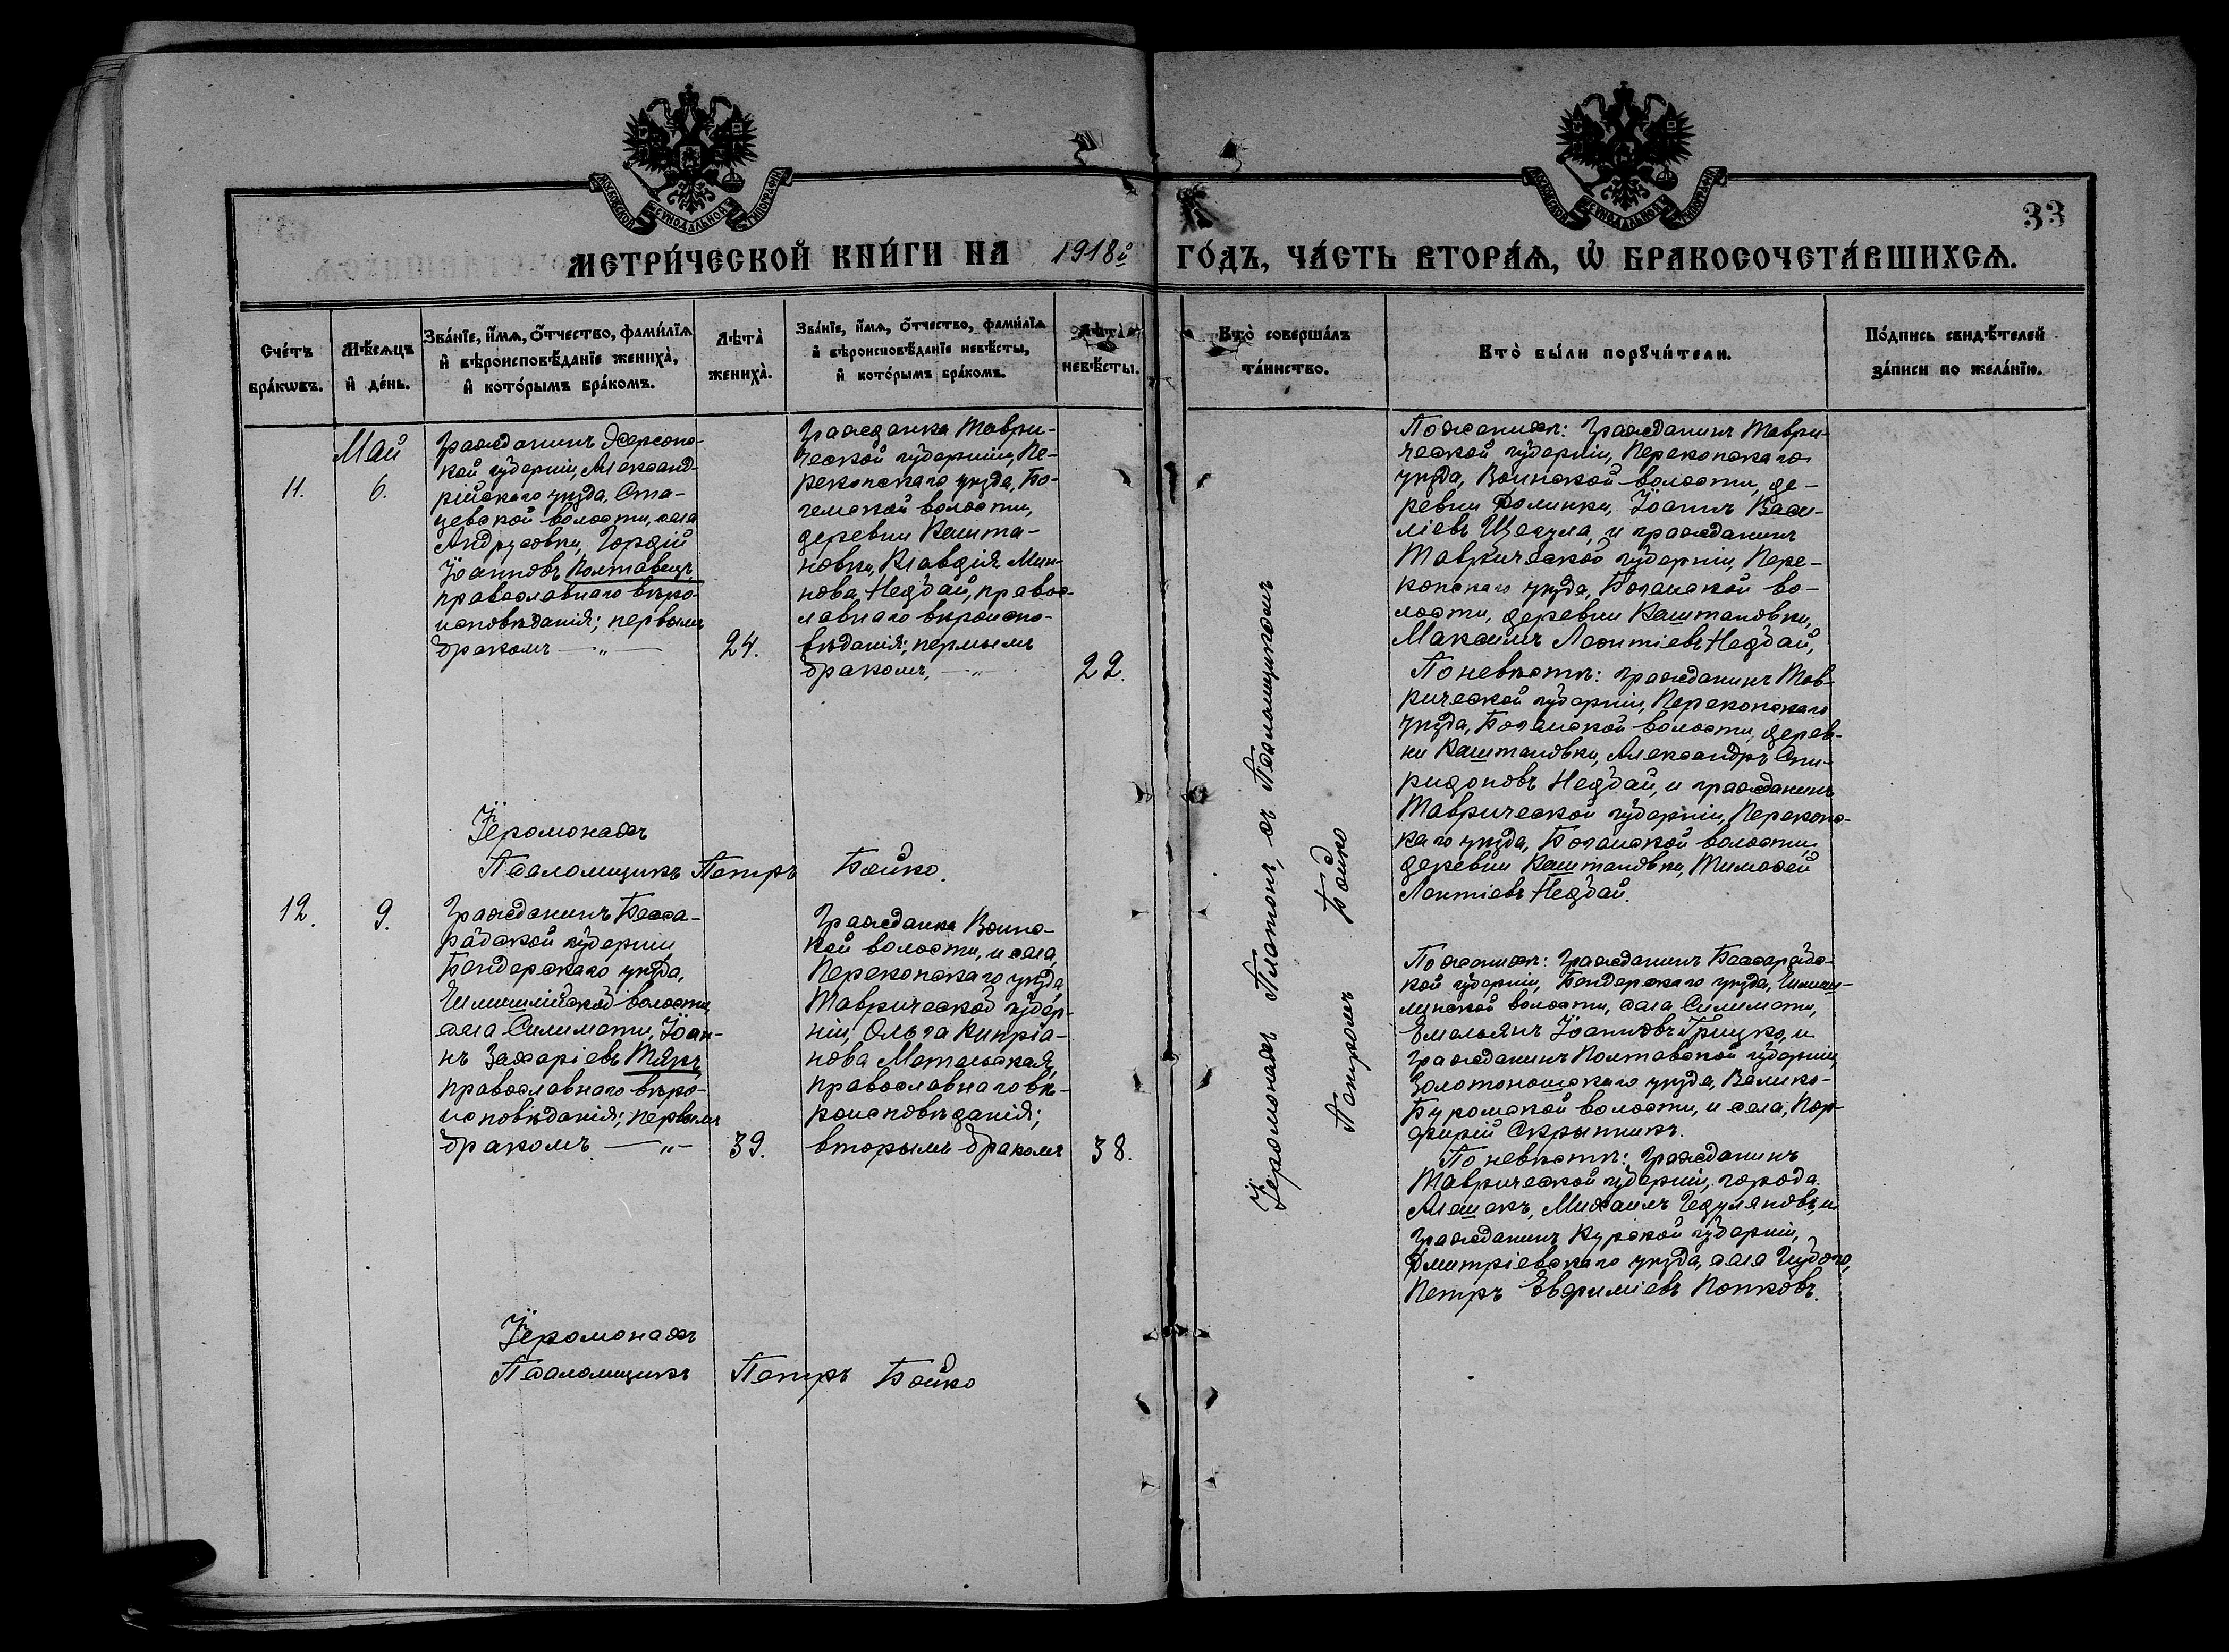 МОСКОВСКОЙ СѴНОДАЛЬНОЙ ТИПОГРАФІИ
МОСКОВСКОЙ СѴНОДАЛЬНОЙ ТИПОГРАФІИ
33
МЕТРИ́ЧЕСКОЙ КНИ́ГИ НА 1918й ГО́ДЪ, ЧА́СТЬ ВТОРА́Ѧ, Ѽ БРАКОСОЧЕТА́ВШИХСѦ.
Сче́тъ
бра́кѡвъ.
Мѣ́сѧцъ
и҆ де́нь.
Зва́нїе, и҆́мѧ, ѻ҆́тчество, фами́лїѧ
и҆ вѣроисповѣ́данїе жениха̀,
и҆ кото́рымъ бра́комъ.
Лѣта̀
жениха̀.
Зва́нїе, и҆́мѧ, ѻ҆́тчество, фами́лїѧ
и҆ вѣроисповѣ́данїе невѣ́сты,
и҆ кото́рымъ бра́комъ.
Лѣта̀
невѣ́сты.
Кто̀ соверша́лъ
та́инство.
Кто̀ бы́ли порꙋчи́тели.
По́дпись свидѣ́телей
за́писи по жела́нїю.
11.
Май
6.
Гражданинъ Херсонс-
кой губерніи, Александ-
рійскаго уѣзда, Ста-
цевской волости, села
Андрусовки, Гордій
Іоанновъ Полтавецъ,
православнаго вѣро-
исповѣданія; первымъ
бракомъ — „ —
24.
Гражданка Таври-
ческой губерніи, Пе-
рекопскаго уѣзда, Бо-
гемской волости,
деревни Кашта-
новки, Клавдія Мин-
нова Недбай, правос-
лавнаго вѣроиспо-
вѣданія; первымъ
бракомъ, — „
22.
Іеромонахъ
Псаломщикъ Петръ Бойко.
Іеромонахъ Платонъ, съ Псаломщикомъ
Петромъ Бойко
По женихѣ: Гражданинъ Таври-
ческой губерніи, Перекопскаго
уѣзда, Воинской волости, де-
ревни Долинки, Іоаннъ Васи-
ліевъ Щегула, и гражданинъ
Таврической губерніи, Пере-
копскаго уѣзда, Богемской во-
лости, деревни Каштановки,
Максимъ Леонтіевъ Недбай,
По невѣстѣ: Гражданинъ Тав-
рической губерніи, Перекопскаго
уѣзда, Богемской волости, дерев-
ни Каштановки, Александръ Спи-
ридоновъ Недбай, и гражданинъ
Таврической губерніи, Перекопс-
каго уѣзда, Богемской волости,
деревни Каштановки, Тимофей
Леонтіевъ Недбай.
12.
9.
Гражданинъ Бесса-
рабской губерніи,
Бендерскаго уѣзда,
волости,
села Селимети, Іоан-
нъ Захаріевъ Тякъ,
православнаго вѣро-
исповѣданія; первымъ
бракомъ — „ —
39.
Гражданка Воинс-
кой волости, и села,
Перекопскаго уѣзда
Таврической губер-
ніи, Ольга Кипріа-
нова Метельская,
православнаго вѣ-
роисповѣданія;
вторымъ бракомъ
38.
Іеромонахъ
Псаломщикъ Петръ Бойко
По женихѣ: Гражданинъ Бессарабс-
кой губерніи, Бендерскаго уѣзда, Чимиш-
лійской волости, села Селимети,
Емельянъ Іоанновъ Грицко, и
гражданинъ Полтавской губерніи,
Золотоношскаго уѣзда, Велико-
Буромской волости, и села, Пор-
фирій Скрыпникъ.
По невѣстѣ: Гражданинъ
Таврической губерніи, города
Алешекъ, Михаилъ и
гражданинъ Курской губерніи,
Дмитріевскаго уѣзда, села
Петръ Евфиміевъ Попковъ.